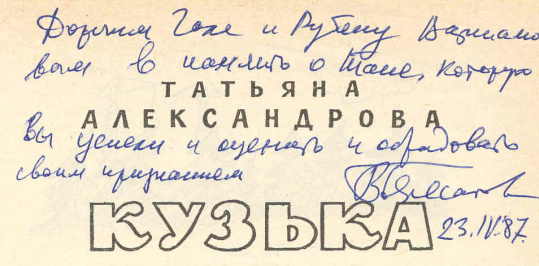 Дорогим Гале и Рубену Вартано
вым в память о Тане, которую
ТАТЬЯНА
АЛЕКСАНДРОВА
Вы успели и оценить и обрадовать
своим признанием
КУЗЬКА
23.IV.87.